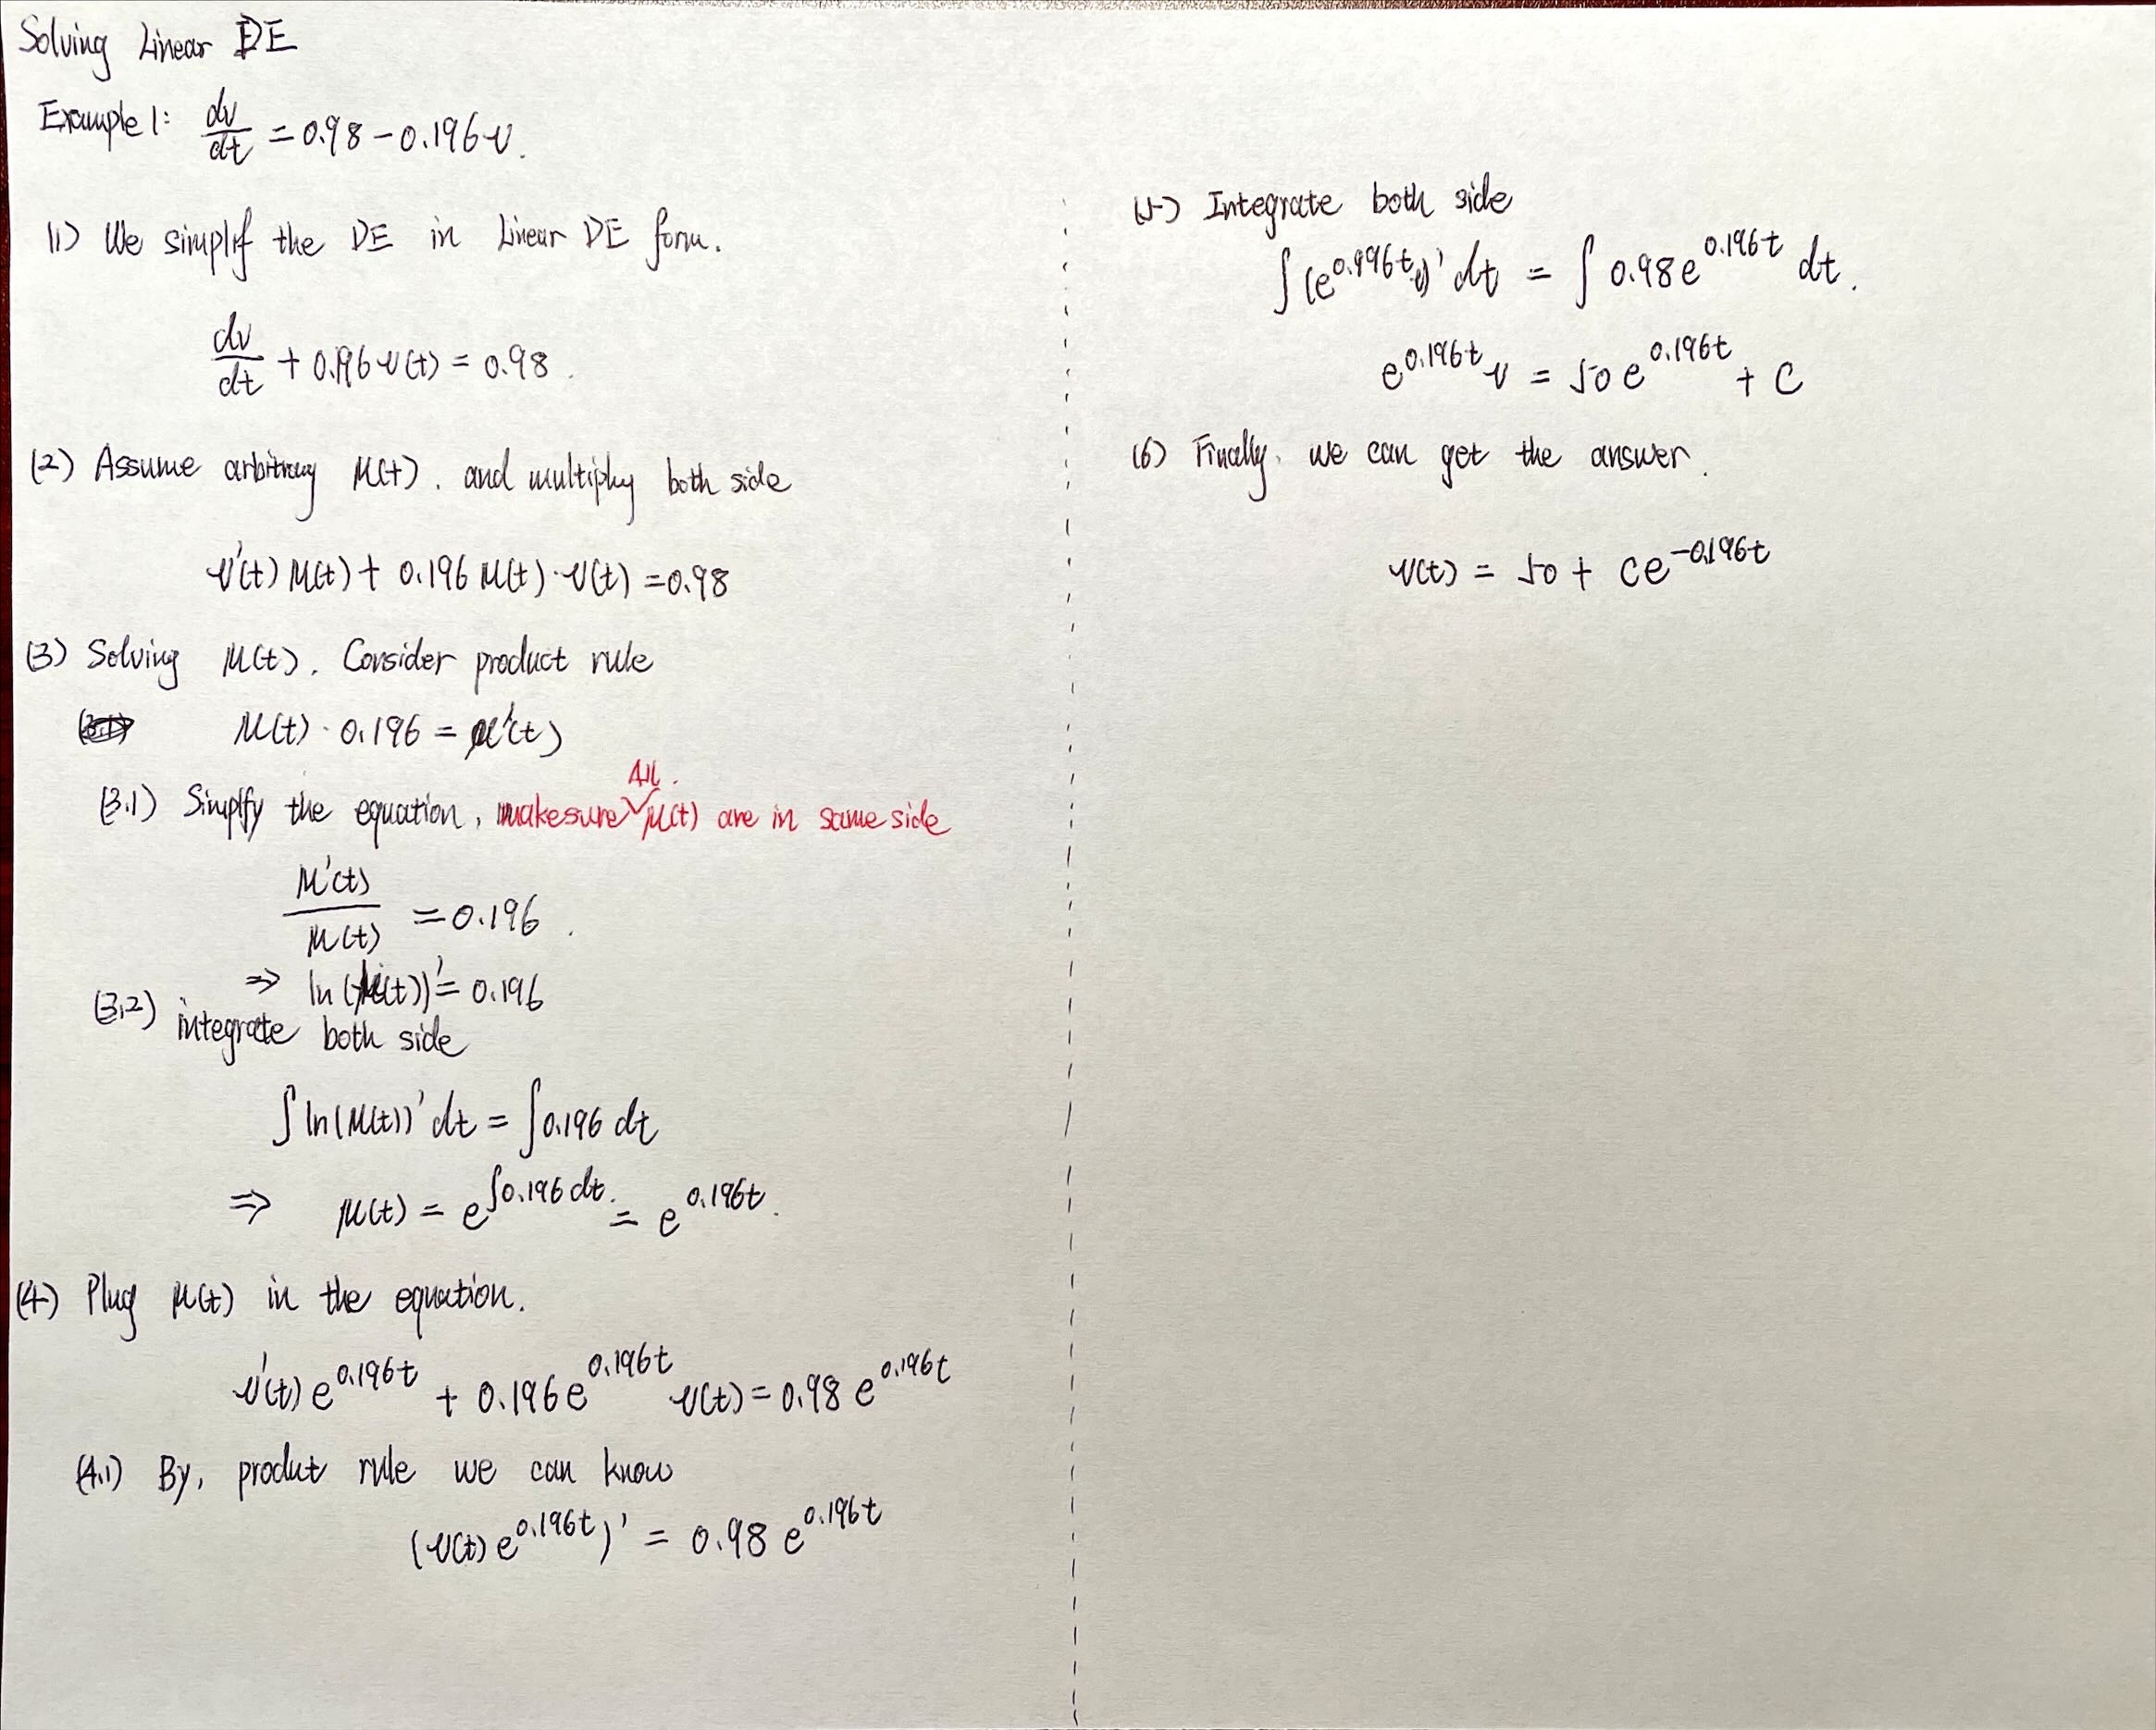 Solving Linear DE
Example 1: dv/dt = 0.98 - 0.196v.
(1) We simplif the DE in Linear DE form.
dv/dt + 0.196 v(t) = 0.98.
(2) Assume arbitrary μ(t). and multiply both side
v'(t) μ(t) + 0.196 μ(t) · v(t) = 0.98
(3) Solving μ(t). Consider product rule
μ(t) · 0.196 = μ'(t)
(3.1) Simplfy the equation, makesure All. μ(t) are in same side
μ'(t)/μ(t) = 0.196.
⇒ ln(μ(t))' = 0.196
(3.2) integrate both side
∫ ln(μ(t))' dt = ∫ 0.196 dt
⇒ μ(t) = e^{∫0.196 dt.} = e^{0.196t}.
(4) Plug μ(t) in the equation.
v'(t) e^{0.196t} + 0.196 e^{0.196t} v(t) = 0.98 e^{0.196t}
(4.1) By, produt rule we can know
(v(t) e^{0.196t})' = 0.98 e^{0.196t}
(5) Integrate both side
∫ (e^{0.996t} v)' dt = ∫ 0.98 e^{0.196t} dt.
e^{0.196t} v = 50 e^{0.196t} + C
(6) Finally, we can get the answer.
v(t) = 50 + Ce^{-0.196t}